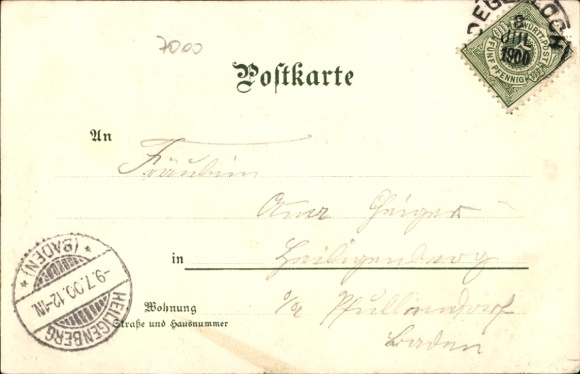 7000
DEGERLOCH
8
JUL
1900
K. WÜRTT. POST
FÜNF PFENNIG
Postkarte
An
Fräulein
Geiger
in Heiligenberg
Pfullendorf
Baden
Wohnung
Straße und Hausnummer
HEILIGENBERG
-9.7.00.12-1N
* (BADEN) *